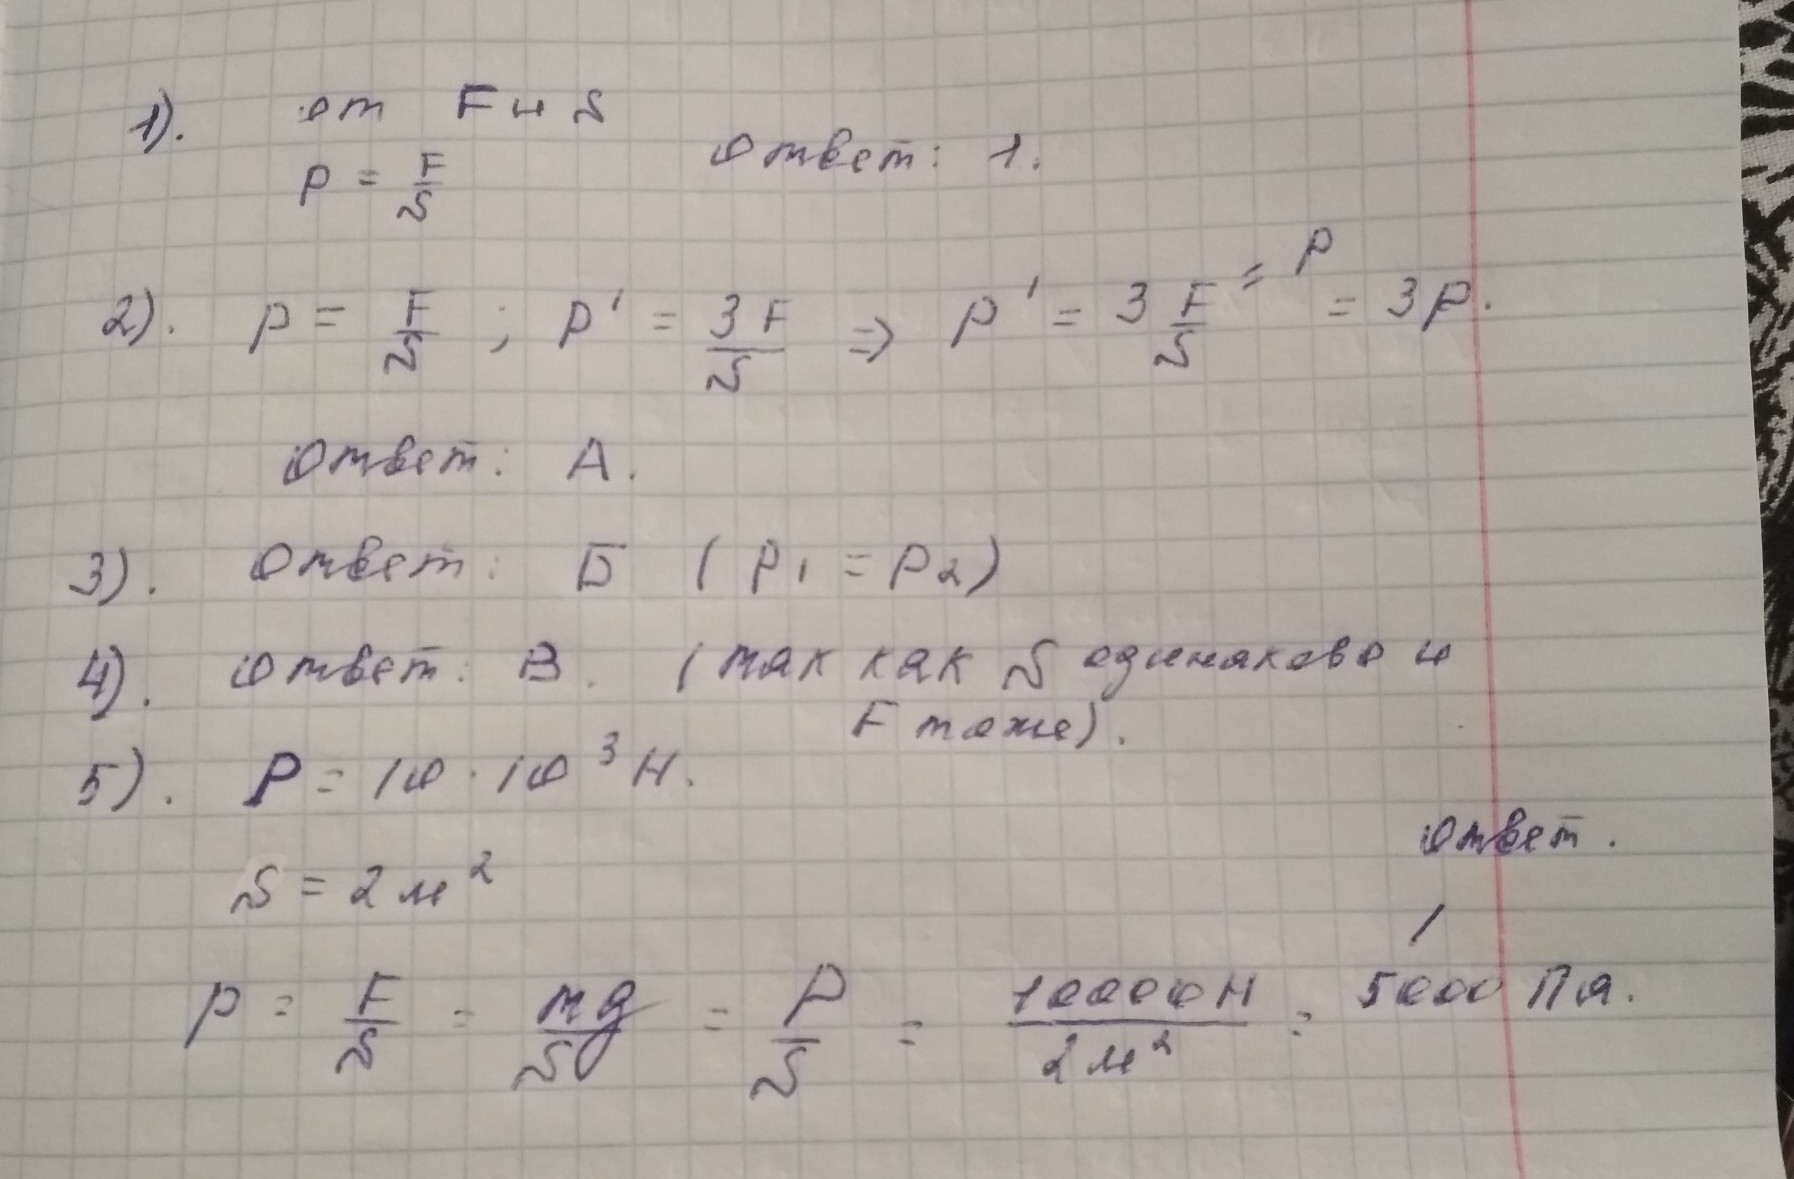 1). от F и S
p = F/S Ответ: 1.
2). p = F/S ; p' = 3F/S => p' = 3 F/S = p = 3p.
Ответ: А.
3). Ответ: Б (p1 = p2)
4). Ответ: В. (так как S одинаково и
F тоже).
5). P = 10 · 10³ Н.
Ответ.
S = 2 м²
p = F/S = mg/S = P/S = 10000Н/2м² = 5000 Па.